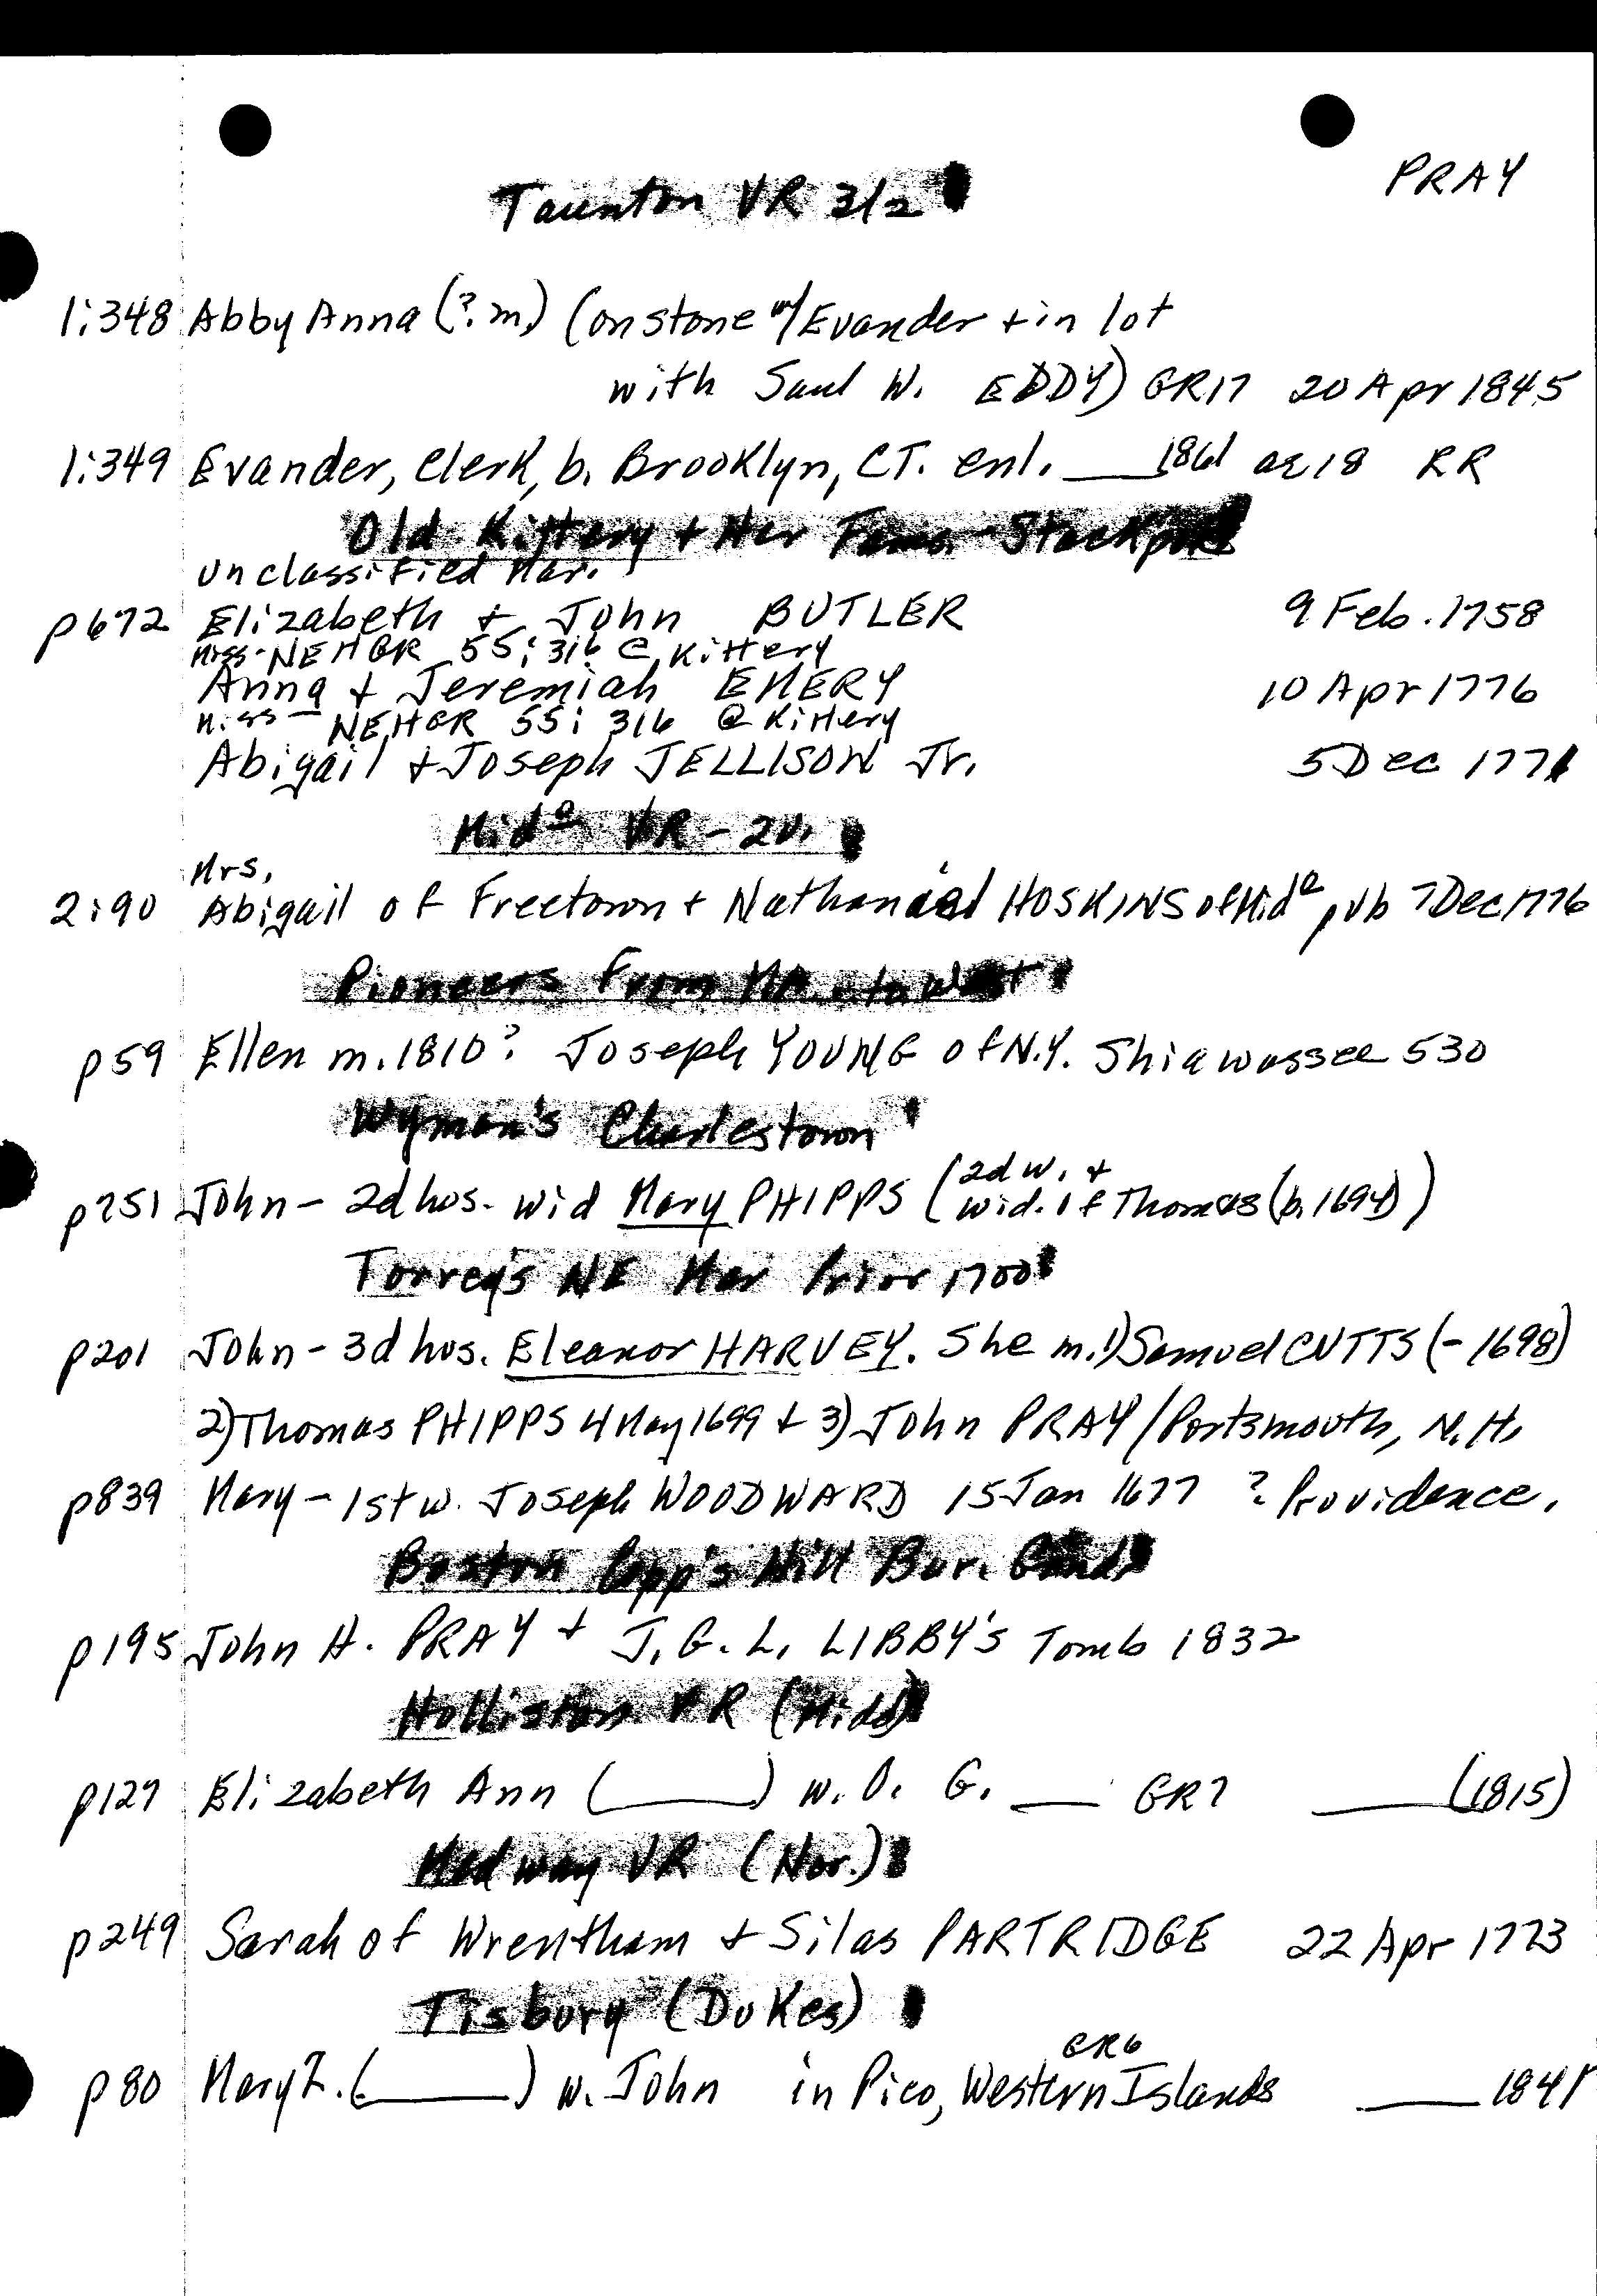 PRAY
Taunton VR
1:348 Abby Anna (? m.) (on stone w/ Evander + in lot
with Saul W. EDDY) GR17 20 Apr 1845
1:349 Evander, Clerk, b. Brooklyn, CT. enl. ___ 1861 ae 18 RR
Old Kittery + Her Fam. Stackpole
Unclassified Mar.
p672 Elizabeth + John BUTLER 9 Feb. 1758
Miss - NEHGR 55:316 @ Kittery
Anna + Jeremiah EMERY 10 Apr 1776
Miss - NEHGR 55:316 @ Kittery
Abigail + Joseph JELLISON Jr. 5 Dec 1771
Midº VR - 2v.
Mrs.
2:90 Abigail of Freetown + Nathanael HOSKINS of Midº pub 7 Dec 1776
Pioneers From MA
p59 Ellen m. 1810? Joseph YOUNG of N.Y. Shiawassee 530
Wyman's Charlestown
p751 John - 2d hus. wid Mary PHIPPS (2d w. + wid. of Thomas (b. 1694))
Torrey's NE Mar Prior 1700
p201 John - 3d hus. Eleanor HARVEY. She m. 1) Samuel CUTTS (-1698)
2) Thomas PHIPPS 4 May 1699 + 3) John PRAY / Portsmouth, N.H.
p839 Mary - 1st w. Joseph WOODWARD 15 Jan 1677 ? Providence.
Boston Copp's Hill Bur. Grnd
p195 John H. PRAY + J. G. L. LIBBY's Tomb 1832
Holliston VR (Midd)
p127 Elizabeth Ann (___) w. O. G. ___ GR7 ___ (1815)
Medway VR (Nor.)
p249 Sarah of Wrentham + Silas PARTRIDGE 22 Apr 1773
Tisbury (Dukes)
GR6
p80 Mary Z. (___) w. John in Pico, Western Islands ___ 1841